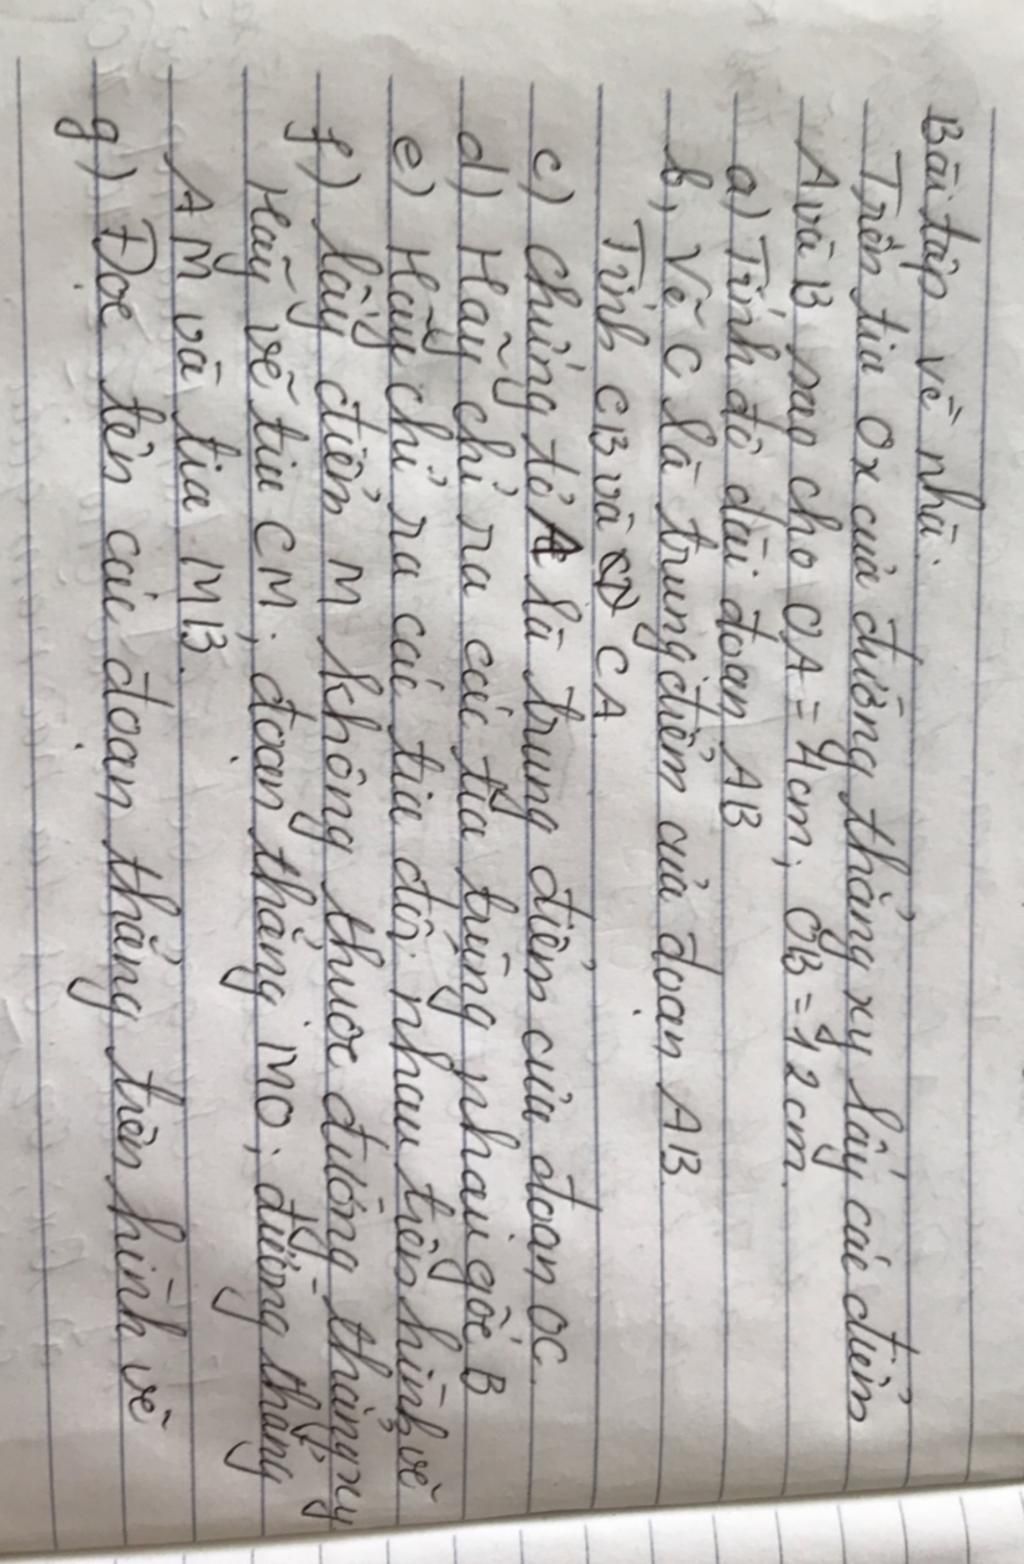 Bài tập về nhà.
Trên tia Ox của đường thẳng xy lấy các điểm
A và B sao cho OA = 4cm, OB = 12cm.
a) Tính độ dài đoạn AB
b, Vẽ C là trung điểm của đoạn AB.
Tính CB và CA
c) Chứng tỏ A là trung điểm của đoạn OC.
d) Hãy chỉ ra các tia trùng nhau gốc B
e) Hãy chỉ ra các tia đối nhau trên hình vẽ
f) Lấy điểm M không thuộc đường thẳng xy
Hãy vẽ tia CM; đoạn thẳng MO; đường thẳng
AM và tia MB.
g) Đọc tên các đoạn thẳng trên hình vẽ